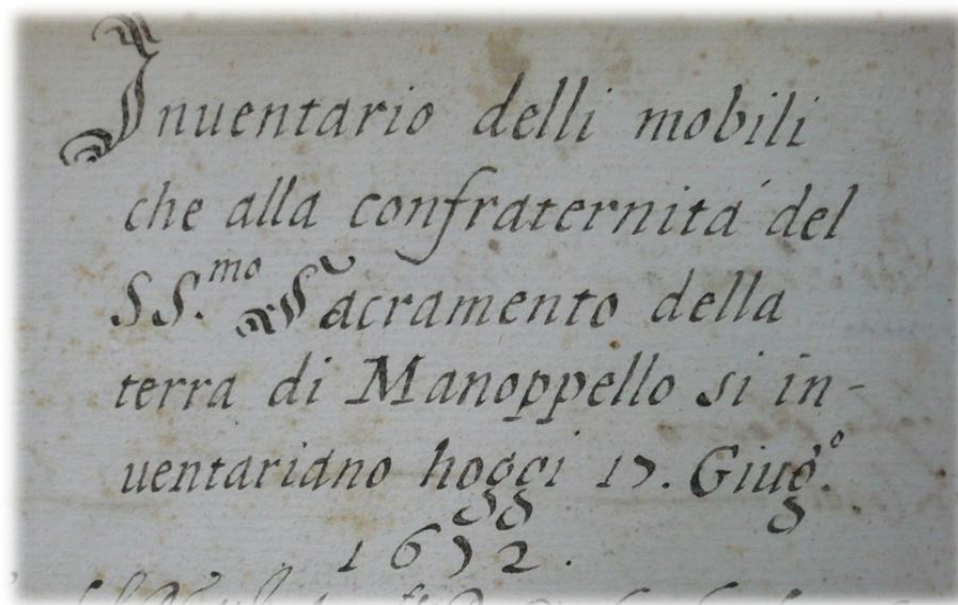 Inuentario delli mobili
che alla confraternitá del
SS.mo Sacramento della
terra di Manoppello si in-
uentariano hoggi 17. Giug.º
1672.